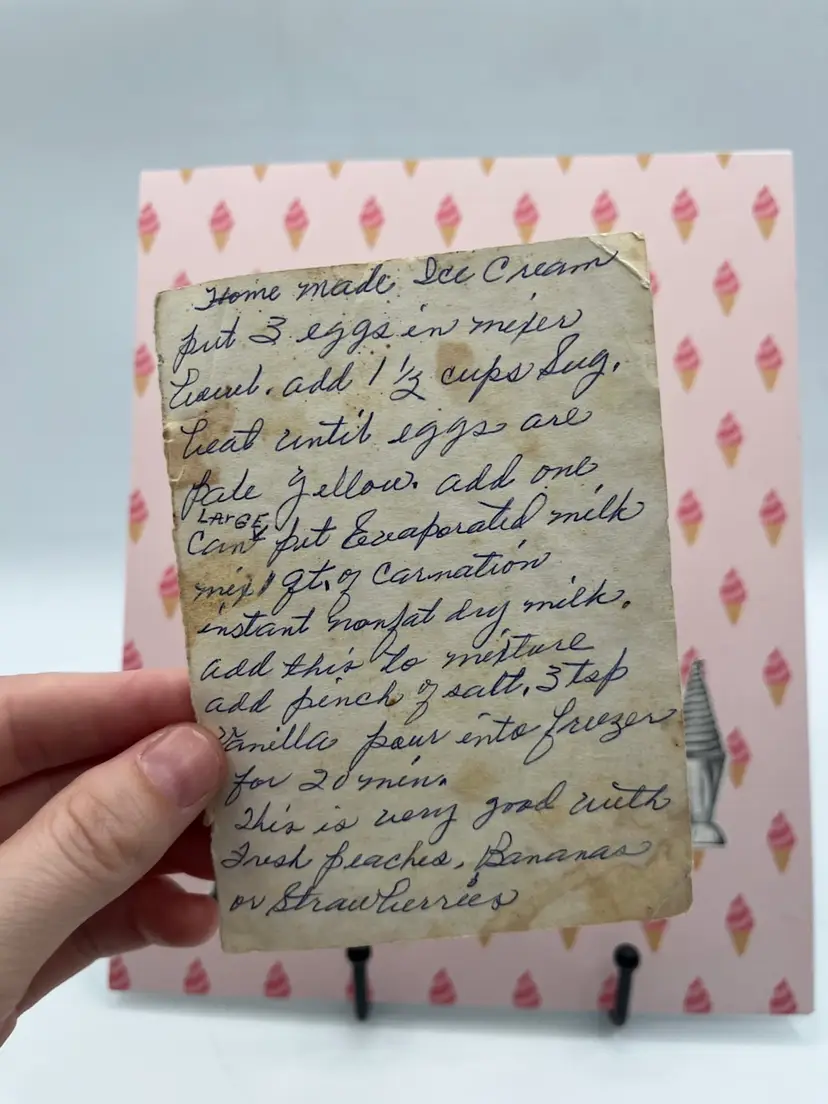 Home made Ice Cream
put 3 eggs in mixer
bowl. add 1 1/2 cups Sug.
beat until eggs are
pale yellow. add one
LArGE
can pet Evaporated milk
mix 1 qt. of Carnation
instant nonfat dry milk.
add this to mixture
add pinch of salt, 3 tsp
Vanilla pour into freezer
for 20 min.
This is very good with
Fresh peaches, Bananas
or Strawberries